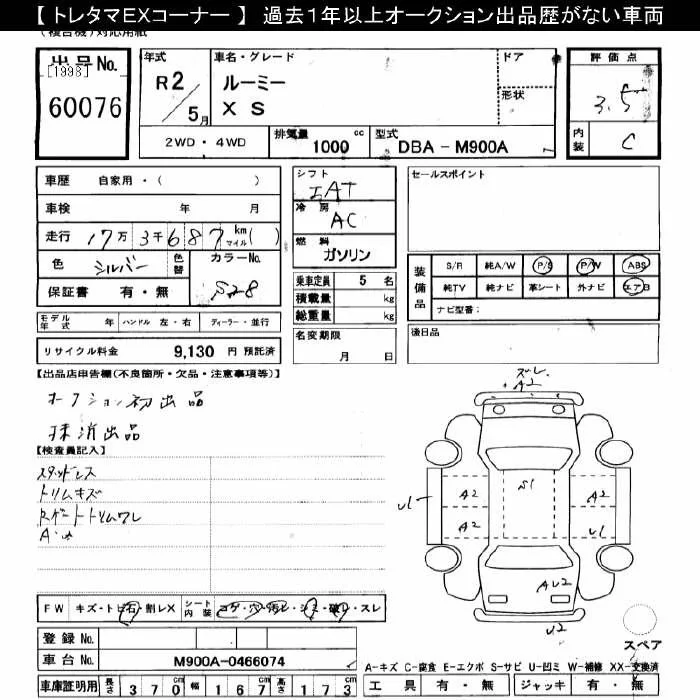 【 トレタマEXコーナー 】 過去1年以上オークション出品歴がない車両
(複合機)対応用紙
出品No.
[1998]
60076
年式
R2/5月
車名・グレード
ルーミー
X S
ドア
形状
2WD・4WD
排気量 1000 cc
型式 DBA - M900A
評価点
3.5
内装 C
車歴 自家用・( )
車検 年 月
走行 17万 3千 6 8 7 km マイル( )
色 シルバー 色替 カラーNo.
S28
保証書 有・無
モデル年式 年 ハンドル 左・右 ディーラー・並行
リサイクル料金 9,130 円 預託済
シフト
IAT
冷房
AC
燃料
ガソリン
乗車定員 5 名
積載量 kg
総重量 kg
名変期限
月 日
セールスポイント
装備品
S/R 純A/W P/S P/W ABS
純TV 純ナビ 革シート 外ナビ エアB
ナビ型番:
後日品
【出品店申告欄(不良箇所・欠品・注意事項等)】
オークション初出品
抹消出品
【検査員記入】
スタッドレス
トリムキズ
Rゲートトリムワレ
ズレ
A2
S1
A2
A2
A2
U1
U1
AU2
U2
スペア
FW キズ・トビ石・割レX シート内装 コゲ・穴・汚レ・シミ・破レ・スレ
登録No.
車台No. M900A-0466074
車庫証明用 長さ 370 幅 167 高さ 173
A-キズ C-腐食 E-エクボ S-サビ U-凹ミ W-補修 XX-交換済
工具 有・無 ジャッキ 有・無